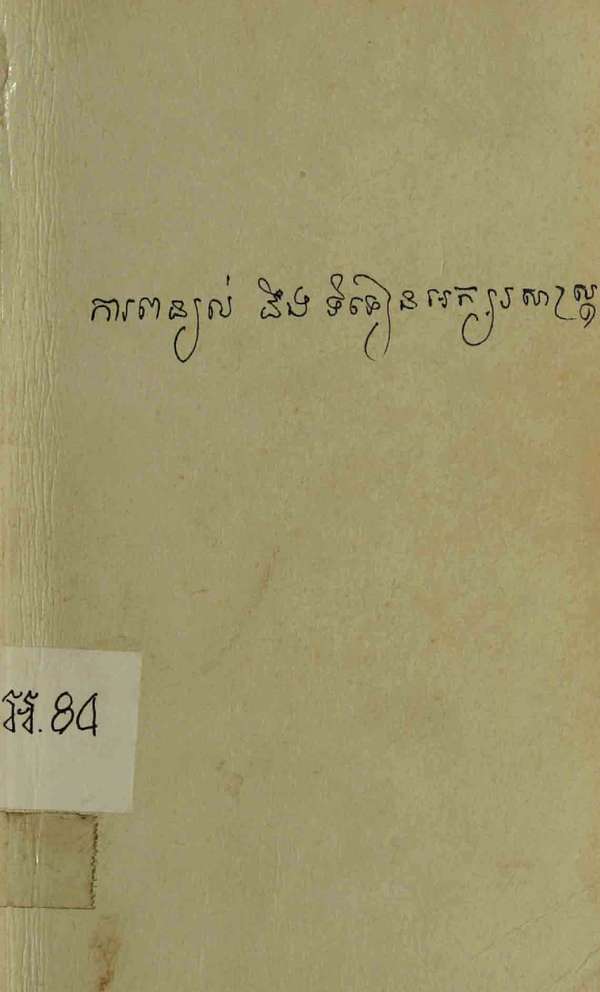 ការពន្យល់ នឹង ទំនៀនអក្សរសាស្ត្រ
អ.84